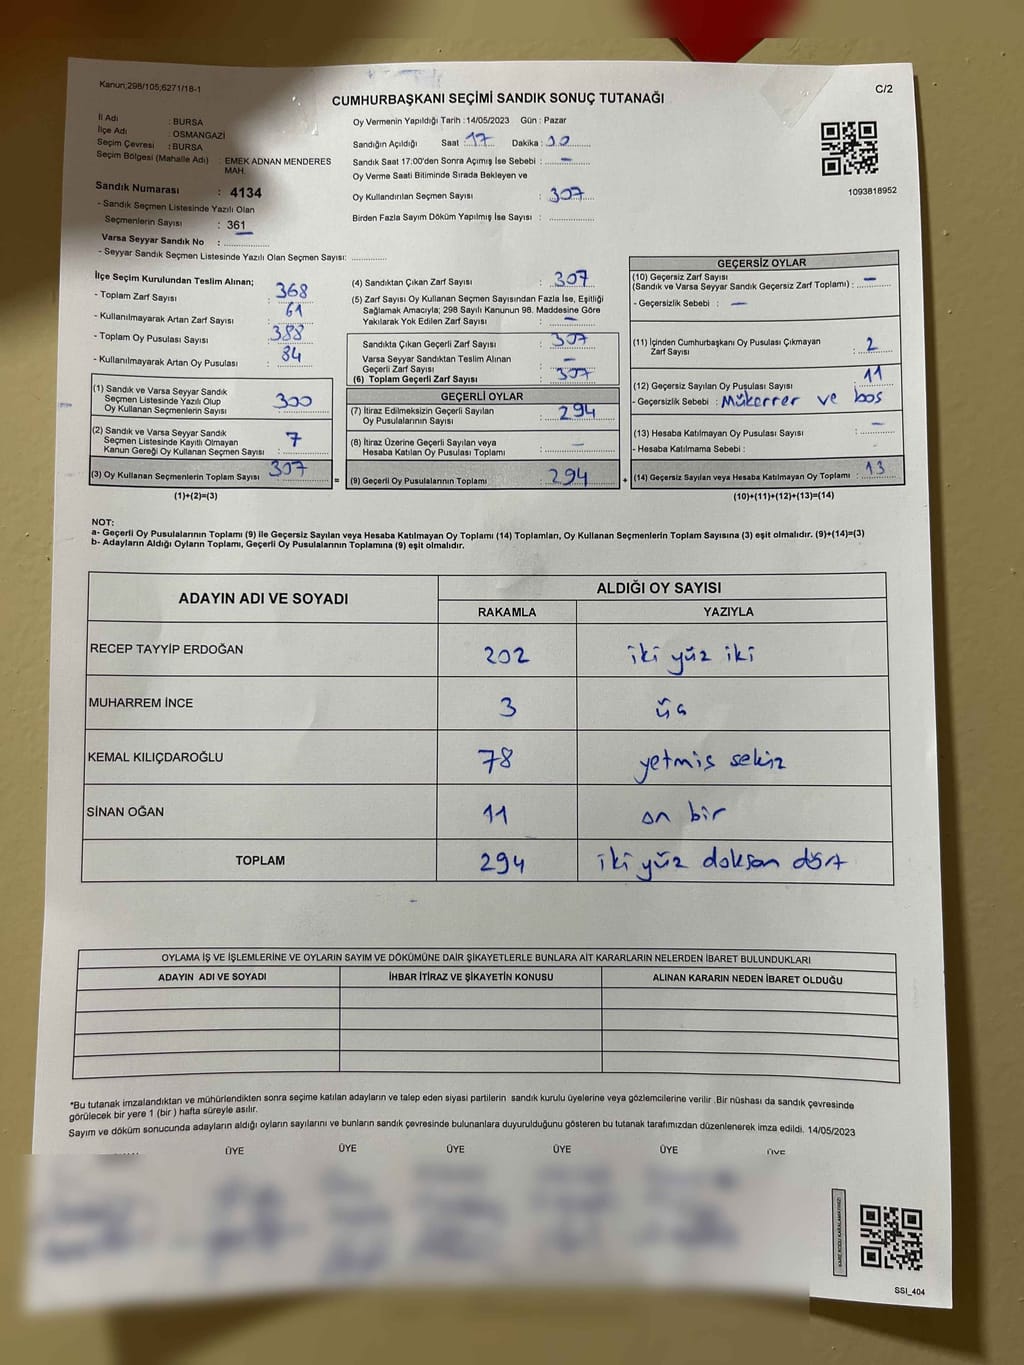 Kanun;298/105;6271/18-1
CUMHURBAŞKANI SEÇİMİ SANDIK SONUÇ TUTANAĞI
C/2
İl Adı : BURSA
İlçe Adı : OSMANGAZİ
Seçim Çevresi : BURSA
Seçim Bölgesi (Mahalle Adı) : EMEK ADNAN MENDERES MAH.
Sandık Numarası : 4134
- Sandık Seçmen Listesinde Yazılı Olan
Seçmenlerin Sayısı : 361
Varsa Seyyar Sandık No :
- Seyyar Sandık Seçmen Listesinde Yazılı Olan Seçmen Sayısı:
Oy Vermenin Yapıldığı Tarih :14/05/2023 Gün : Pazar
Sandığın Açıldığı Saat : 17 Dakika :
Sandık Saat 17:00'den Sonra Açımış İse Sebebi : –
Oy Verme Saati Bitiminde Sırada Bekleyen ve
Oy Kullandırılan Seçmen Sayısı : 307
Birden Fazla Sayım Döküm Yapılmış İse Sayısı :
1093818952
İlçe Seçim Kurulundan Teslim Alınan;
- Toplam Zarf Sayısı : 368
- Kullanılmayarak Artan Zarf Sayısı : 61
- Toplam Oy Pusulası Sayısı : 388
- Kullanılmayarak Artan Oy Pusulası : 84
(1) Sandık ve Varsa Seyyar Sandık
Seçmen Listesinde Yazılı Olup
Oy Kullanan Seçmenlerin Sayısı : 300
(2) Sandık ve Varsa Seyyar Sandık
Seçmen Listesinde Kayıtlı Olmayan
Kanun Gereği Oy Kullanan Seçmen Sayısı : 7
(3) Oy Kullanan Seçmenlerin Toplam Sayısı : 307
(1)+(2)=(3)
(4) Sandıktan Çıkan Zarf Sayısı : 307
(5) Zarf Sayısı Oy Kullanan Seçmen Sayısından Fazla İse, Eşitliği
Sağlamak Amacıyla; 298 Sayılı Kanunun 98. Maddesine Göre
Yakılarak Yok Edilen Zarf Sayısı : –
Sandıkta Çıkan Geçerli Zarf Sayısı : 307
Varsa Seyyar Sandıktan Teslim Alınan
Geçerli Zarf Sayısı : –
(6) Toplam Geçerli Zarf Sayısı : 307
GEÇERLİ OYLAR
(7) İtiraz Edilmeksizin Geçerli Sayılan
Oy Pusulalarının Sayısı : 294
(8) İtiraz Üzerine Geçerli Sayılan veya
Hesaba Katılan Oy Pusulası Toplamı : –
= (9) Geçerli Oy Pusulalarının Toplamı : 294
GEÇERSİZ OYLAR
(10) Geçersiz Zarf Sayısı
(Sandık ve Varsa Seyyar Sandık Geçersiz Zarf Toplamı) : –
- Geçersizlik Sebebi : –
(11) İçinden Cumhurbaşkanı Oy Pusulası Çıkmayan
Zarf Sayısı : 2
(12) Geçersiz Sayılan Oy Pusulası Sayısı : 11
- Geçersizlik Sebebi : Mükerrer ve boş
(13) Hesaba Katılmayan Oy Pusulası Sayısı : –
- Hesaba Katılmama Sebebi :
+ (14) Geçersiz Sayılan veya Hesaba Katılmayan Oy Toplamı : 13
(10)+(11)+(12)+(13)=(14)
NOT:
a- Geçerli Oy Pusulalarının Toplamı (9) ile Geçersiz Sayılan veya Hesaba Katılmayan Oy Toplamı (14) Toplamları, Oy Kullanan Seçmenlerin Toplam Sayısına (3) eşit olmalıdır. (9)+(14)=(3)
b- Adayların Aldığı Oyların Toplamı, Geçerli Oy Pusulalarının Toplamına (9) eşit olmalıdır.
ADAYIN ADI VE SOYADI
ALDIĞI OY SAYISI
RAKAMLA YAZIYLA
RECEP TAYYİP ERDOĞAN 202 iki yüz iki
MUHARREM İNCE 3 üç
KEMAL KILIÇDAROĞLU 78 yetmiş sekiz
SİNAN OĞAN 11 on bir
TOPLAM 294 iki yüz doksan dört
OYLAMA İŞ VE İŞLEMLERİNE VE OYLARIN SAYIM VE DÖKÜMÜNE DAİR ŞİKAYETLERLE BUNLARA AİT KARARLARIN NELERDEN İBARET BULUNDUKLARI
ADAYIN ADI VE SOYADI İHBAR İTİRAZ VE ŞİKAYETİN KONUSU ALINAN KARARIN NEDEN İBARET OLDUĞU
*Bu tutanak imzalandıktan ve mühürlendikten sonra seçime katılan adayların ve talep eden siyasi partilerin sandık kurulu üyelerine veya gözlemcilerine verilir .Bir nüshası da sandık çevresinde
görülecek bir yere 1 (bir ) hafta süreyle asılır.
Sayım ve döküm sonucunda adayların aldığı oyların sayılarını ve bunların sandık çevresinde bulunanlara duyurulduğunu gösteren bu tutanak tarafımızdan düzenlenerek imza edildi. 14/05/2023
ÜYE ÜYE ÜYE ÜYE ÜYE ÜYE
SSI_404